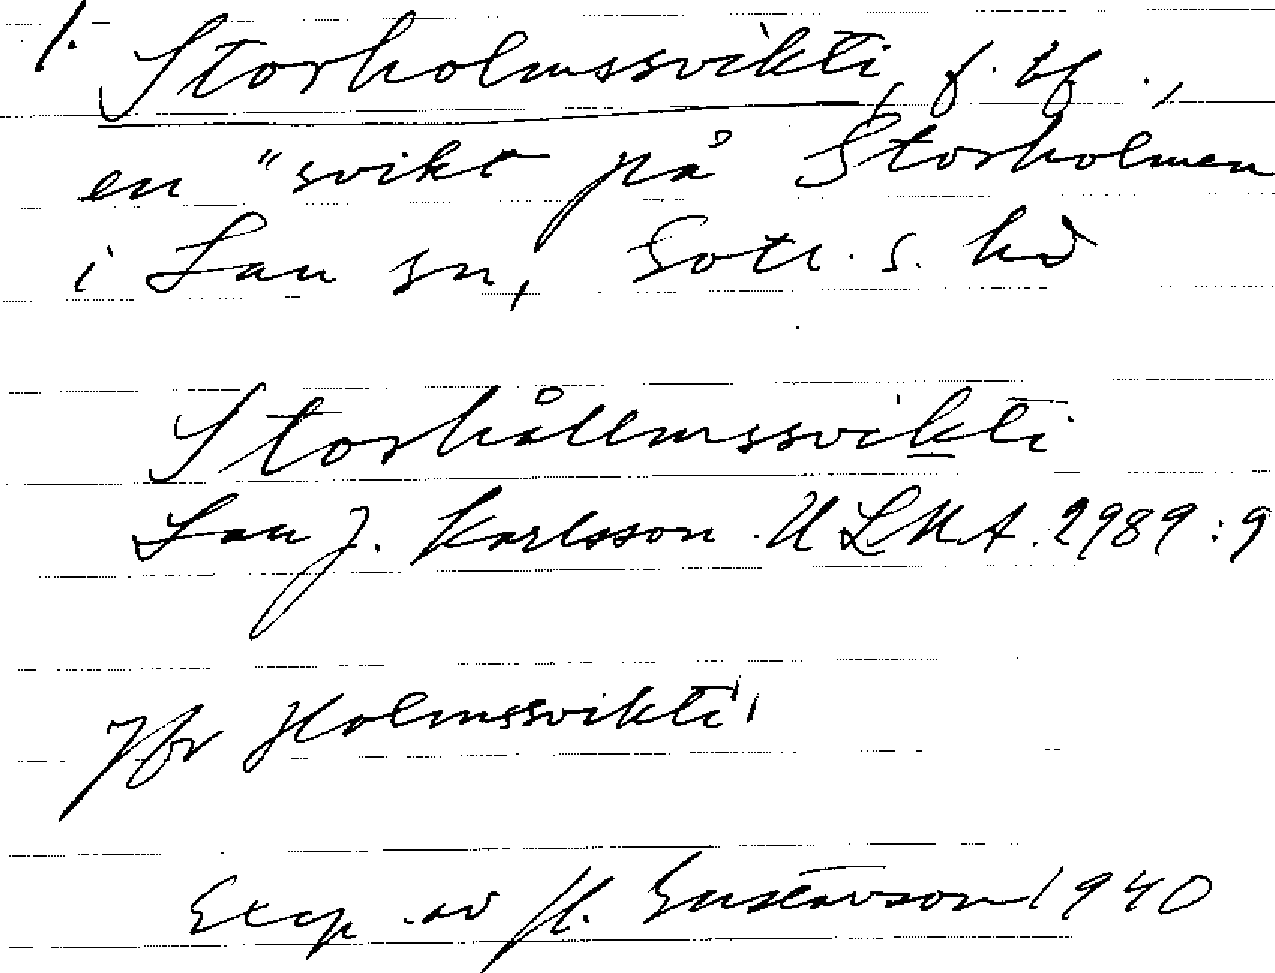 1. Storholmssvikti, f. bf.,
en "svikt" på Storholmen
i Lau sn, Gotl. s. hd
Storhållmssvikti
Lau J. Karlsson. ULMA. 2989:9
Jfr Holmssvikti
Excp. av H. Gustavson 1940